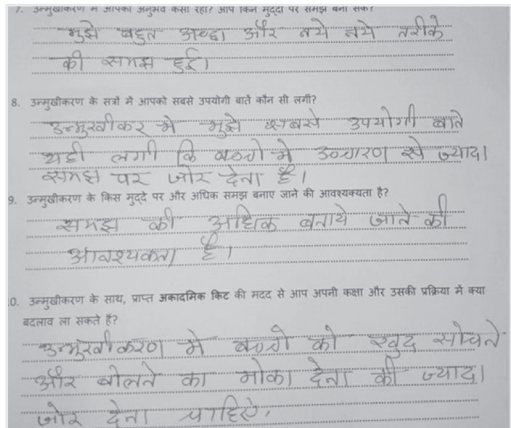 7. उन्मुखीकरण में आपका अनुभव कैसा रहा? आप किन मुद्दों पर समझ बना सके?
मुझे बहुत अच्छा और नये नये तरीके
की समझ हुई।
8. उन्मुखीकरण के सत्रों में आपको सबसे उपयोगी बातें कौन सी लगीं?
उन्मुखीकर मे मुझे सबसे उपयोगी बाते
यही लगी कि बच्चो मे उच्चारण से ज्यादा
समझ पर जोर देना है।
9. उन्मुखीकरण के किस मुद्दे पर और अधिक समझ बनाए जाने की आवश्यक्यता है?
समझ की अधिक बनाये जाने की
आवश्यकता है।
0. उन्मुखीकरण के साथ, प्राप्त अकादमिक किट की मदद से आप अपनी कक्षा और उसकी प्रक्रिया में क्या
बदलाव ला सकते हैं?
उन्मुखीकरण मे बच्चो को खुद सोचने
और बोलने का मोका देना की ज्यादा
जोर देना चाहिए.